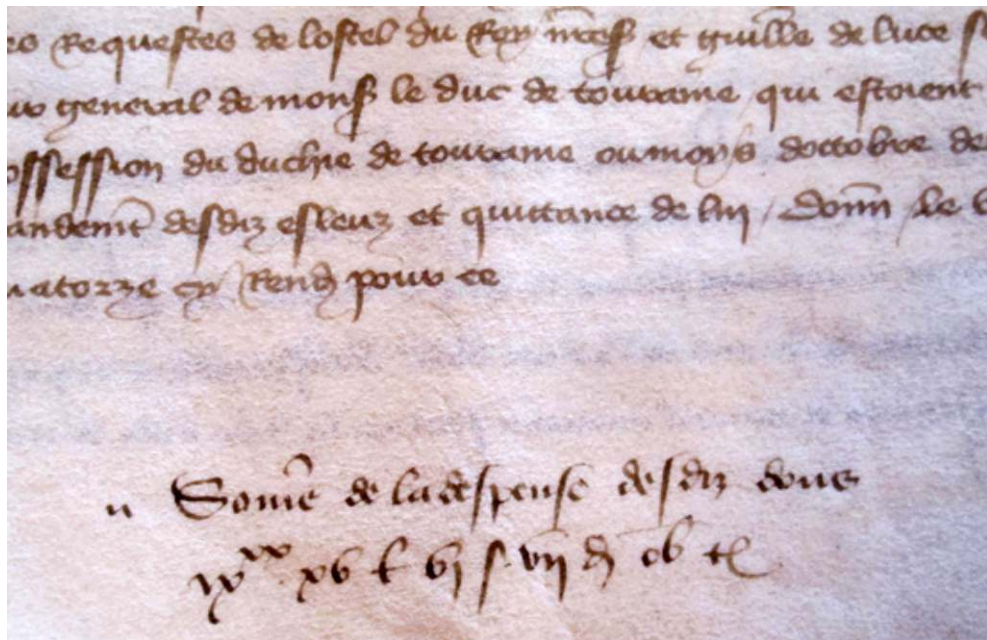 es Requestes de lostel du Roy nre sr et guille de luce
general de monsr le duc de touraine qui estoient
ossession du duchie de touraine ou moys doctobre de
andemt desdiz esleuz et quittance de lui / Donn le
uatorze cy Rendu pour ce
Some de la despense desdiz dons
ixxx xv l vj s vij d ob t